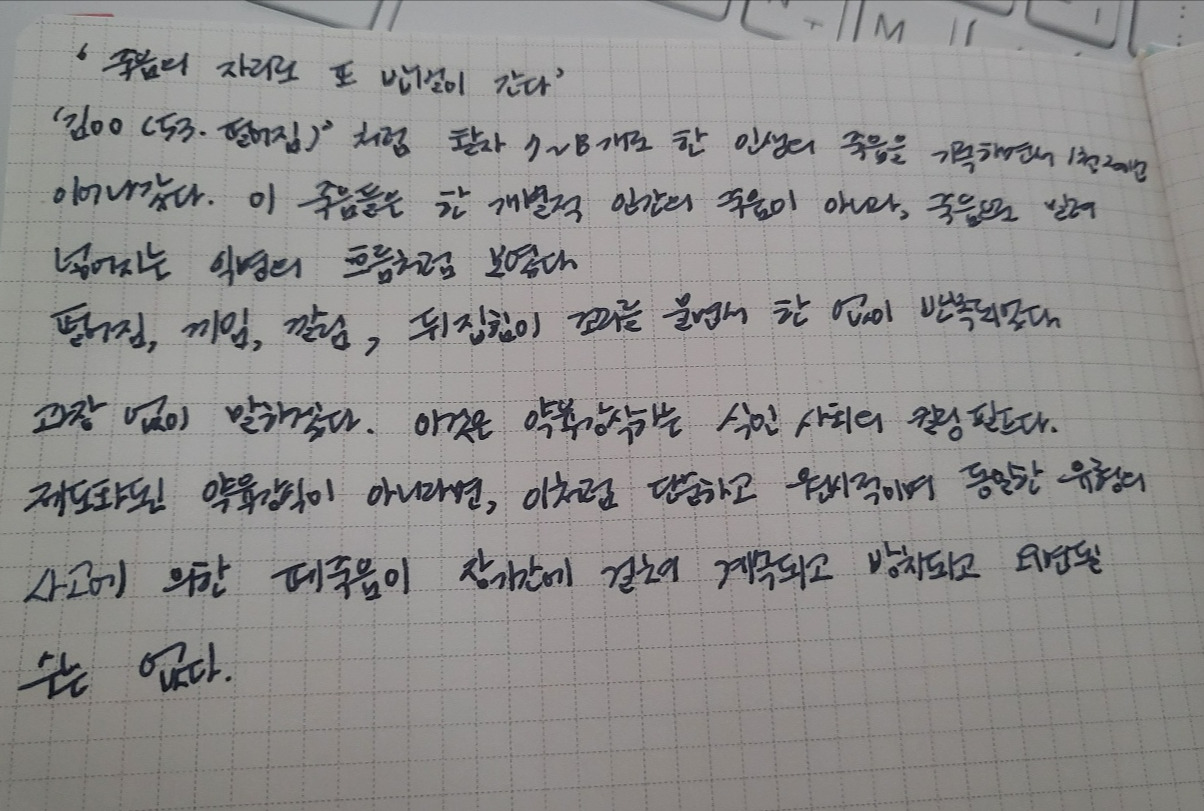 M
‘죽음의 자리로 또 밥벌이 간다’
‘김00 (53. 떨어짐)’ 처럼 활자 7~8개로 한 인생의 죽음을 기록하면서 1천200번
이어나갔다. 이 죽음들은 한 개별적 인간의 죽음이 아니라, 죽음으로 밀려
넘어지는 익명의 흐름처럼 보였다
떨어짐, 끼임, 깔림, 뒤집힘이 꼬리를 물면서 한 없이 반복되었다
과장 없이 말하겠다. 이것은 약육강식하는 식인 사회의 킬링필드다.
제도화된 약육강식이 아니라면, 이처럼 단순하고 원시적이며 동일한 유형의
사고에 의한 떼죽음이 장기간에 걸쳐 계속되고 방치되고 외면될
수는 없다.